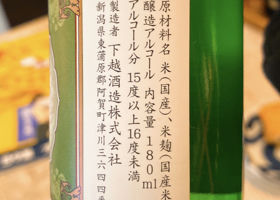 原材料名 米(国産)、米麹(国産米
醸造アルコール 内容量 180ml
アルコール分 15度以上16度未満
製造者 下越酒造株式会社
新潟県東蒲原郡阿賀町津川三六四四番